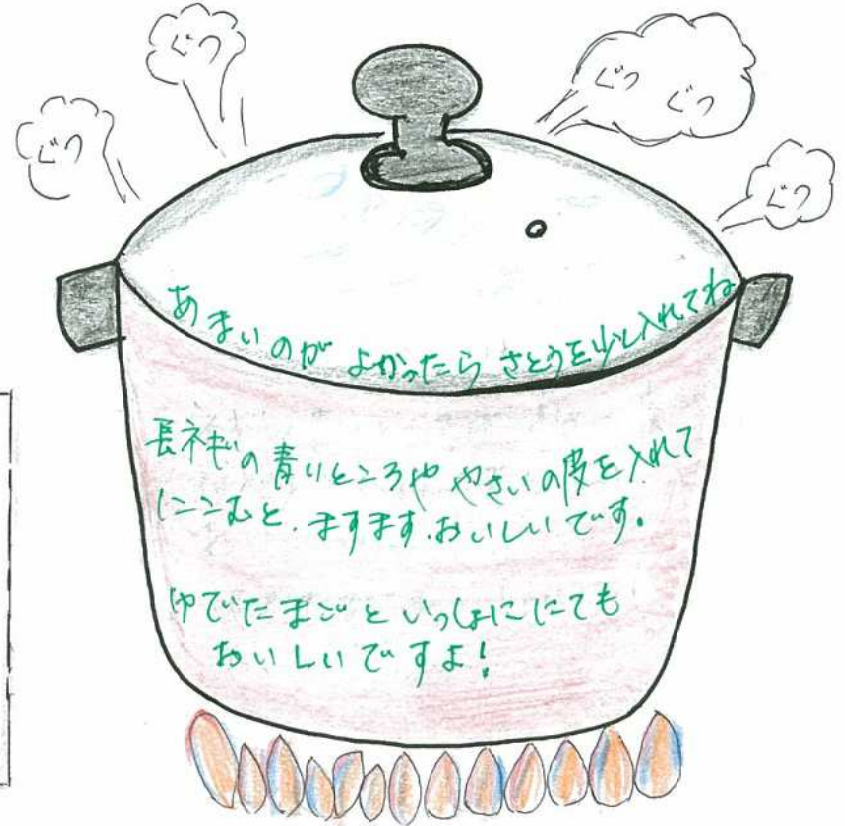 ぐつ
ぐつ
ぐつ ぐつ
ぐつ
あまいのが よかったら さとうを少し入れてね
長ネギの青いところや やさいの皮を入れて
にこむと、ますます、おいしいです。
ゆでたまごと いっしょににても
おいしいですよ!